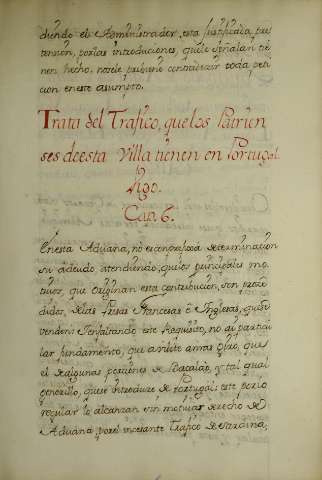 diendo el Administrador esta justificada pre
tension, por las introduciones, que le señalan tie
nen hecho, no se le prohive considerar toda peti
cion en este asumpto.
Trata del Trafico, que los Patrien
ses de esta Villa tienen en Portugal
Vigo.
Cap. 6.
En esta Aduana, no es
determinacion
su adeudo, atendiendo, que los principales mo
tivos, que originan esta contribucion, son proce
didos, de las Presas Francesas è Inglesas, que se
venden: Y enfaltando este Requisito, no ai particu
lar fundamento, que avilite arras
el de algunas porciones de Bacalao, y tal qual
generillo, que se introduze de Portugal: este
regular lo alcanzan sin motivar derecho de
Aduana, por el incesante Trafico de Sardina,